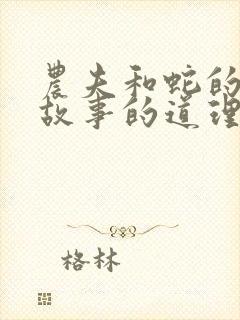 農夫和蛇的
故事的道理
格林